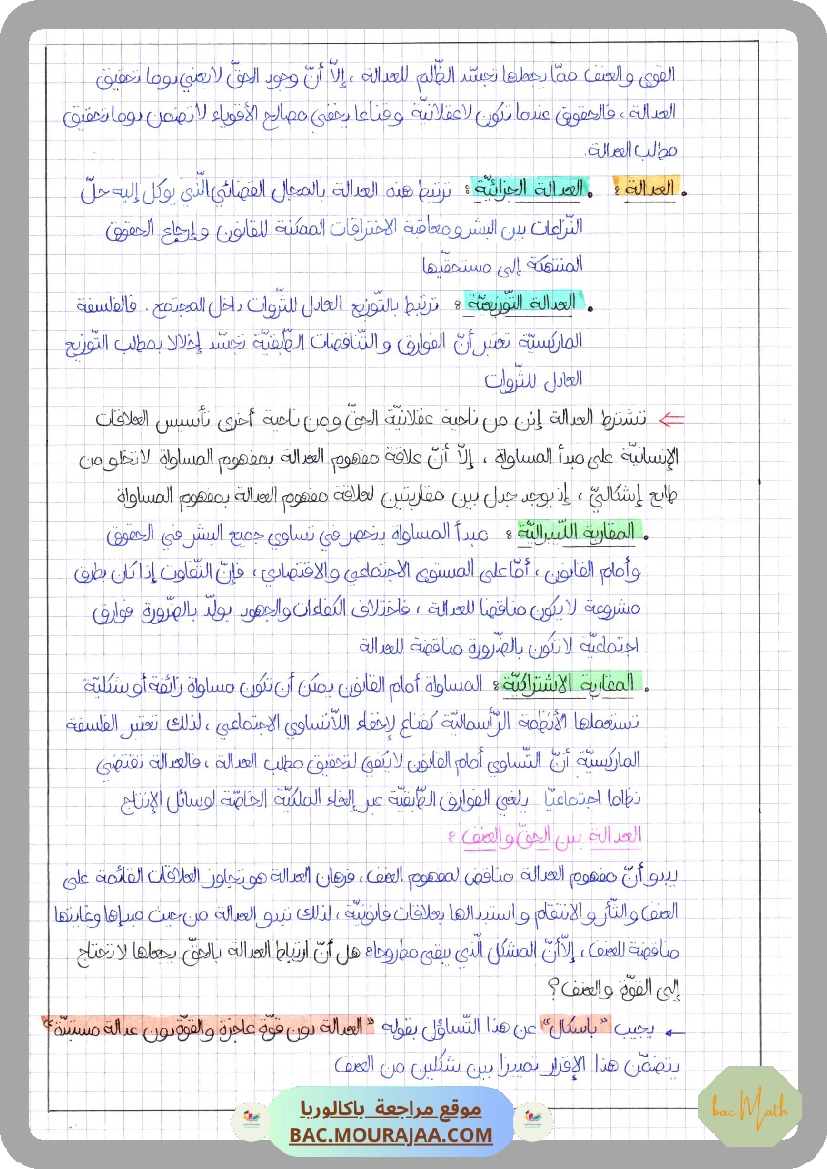 القوي والعنف ممّا يجعلها تجسّد الظّالم للعدالة ، إلّا أنّ وجود الحقّ لا يعني يوما تحقيق
العدالة ، فالحقوق عندما تكون لاعقلانيّة وقناعا يخفي مصالح الأقوياء لا تضمن يوما تحقيق
مطلب العدالة.
• العدالة : • العدالة الجزائيّة : ترتبط هذه العدالة بالمجال القضائي الّذي يوكل إليه حلّ
النّزاعات بين البشر ومعاقبة الاختراقات الممكنة للقانون وإرجاع الحقوق
المنتهكة إلى مستحقّيها
• العدالة التّوزيعيّة : ترتبط بالتّوزيع العادل للثّروات داخل المجتمع . فالفلسفة
الماركسيّة تعتبر أنّ الفوارق والتّناقضات الطّبقيّة تجسّد إخلالا بمطلب التّوزيع
العادل للثّروات
⇐ تشترط العدالة إذن من ناحية عقلانيّة الحقّ ومن ناحية أخرى تأسيس العلاقات
الإنسانيّة على مبدأ المساواة ، إلّا أنّ علاقة مفهوم العدالة بمفهوم المساواة لا تخلو من
طابع إشكاليّ ، إذ يوجد جدل بين مقاربتين لعلاقة مفهوم العدالة بمفهوم المساواة
• المقاربة اللّيبراليّة : مبدأ المساواة ينحصر في تساوي جميع البشر في الحقوق
وأمام القانون ، أمّا على المستوى الاجتماعي والاقتصادي ، فإنّ التّفاوت إذا كان بطرق
مشروعة لا يكون مناقضا للعدالة ، فاختلاف الكفاءات والجهود يولّد بالضّرورة فوارق
اجتماعيّة لا تكون بالضّرورة مناقضة للعدالة
• المقاربة الاشتراكيّة : المساواة أمام القانون يمكن أن تكون مساواة زائفة أو شكليّة
تستعملها الأنظمة الرّأسماليّة كقناع لإخفاء اللّاتساوي الاجتماعي ، لذلك تعتبر الفلسفة
الماركسيّة أنّ التّساوي أمام القانون لا يكفي لتحقيق مطلب العدالة ، فالعدالة تقتضي
نظاما اجتماعيّا يلغي الفوارق الطّبقيّة عبر إلغاء الملكيّة الخاصّة لوسائل الإنتاج
العدالة بين الحقّ والعنف :
يبدو أنّ مفهوم العدالة مناقض لمفهوم العنف ، فرهان العدالة هو تجاوز العلاقات القائمة على
العنف والثّأر والانتقام واستبدالها بعلاقات قانونيّة ، لذلك تبدو العدالة من حيث مبدإها وغايتها
مناقضة للعنف ، إلّا أنّ المشكل الّذي يبقى مطروحا: هل أنّ ارتباط العدالة بالحقّ يجعلها لا تحتاج
إلى القوّة والعنف ؟
← يجيب "باسكال" عن هذا التّساؤل بقوله "العدالة بدون قوّة عاجزة والقوّة بدون عدالة مستبدّة"
يتضمّن هذا الإقرار تمييزا بين شكلين من العنف
موقع مراجعة باكالوريا
BAC.MOURAJAA.COM
bac Math